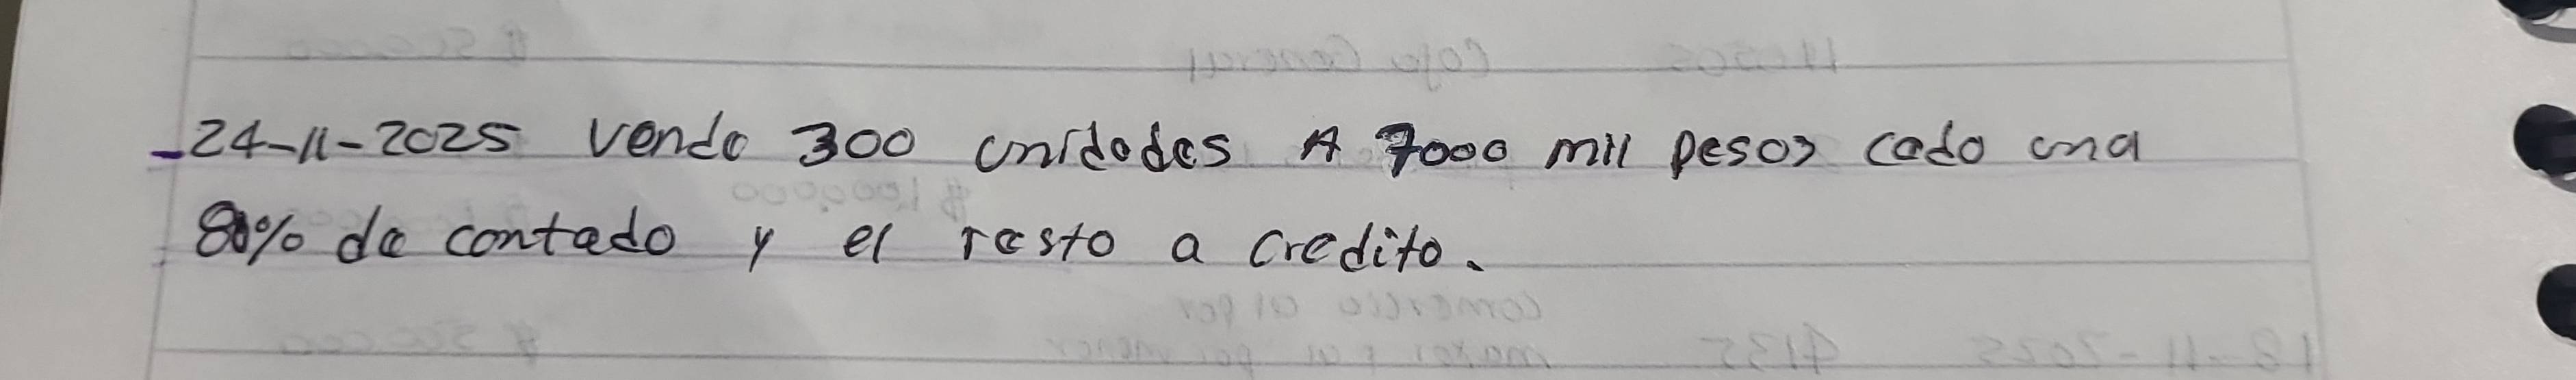 -24-11-2025 vendo 300 unidades A 7000 mil pesos cada una
80% de contado y el resto a credito.